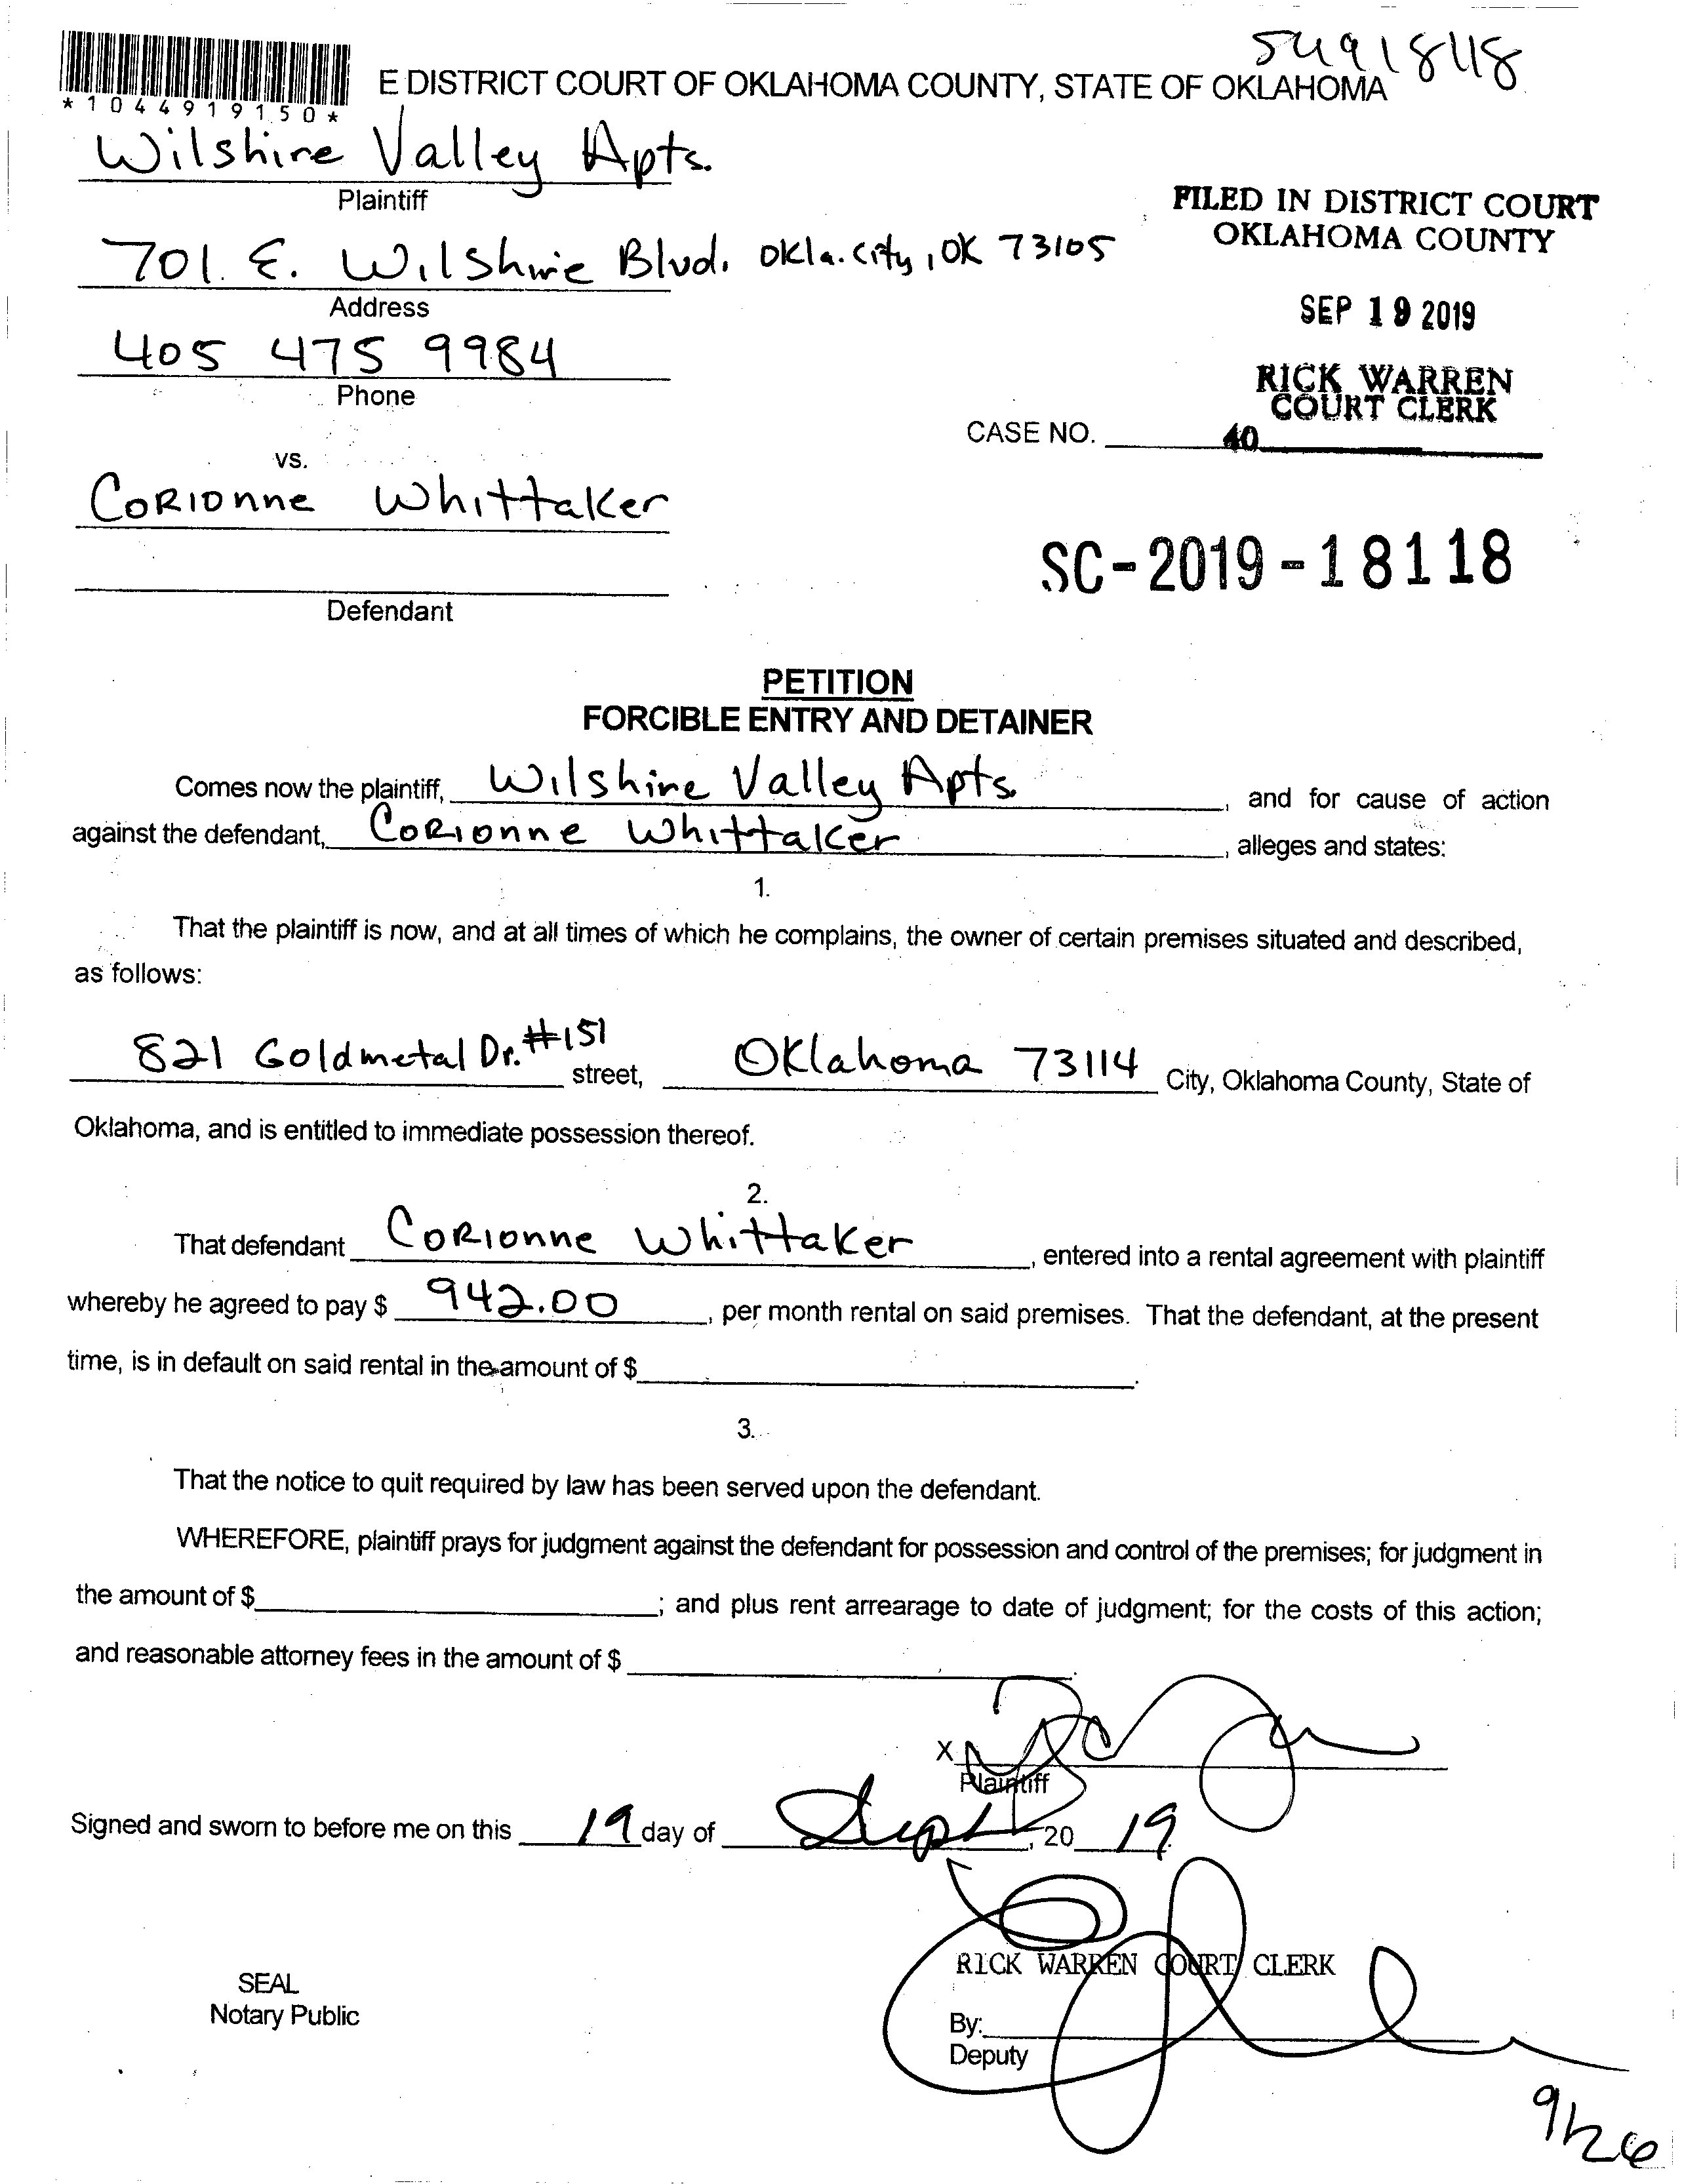 54918118
*1044919150*
E DISTRICT COURT OF OKLAHOMA COUNTY, STATE OF OKLAHOMA
Wilshire Valley Apts.
Plaintiff
FILED IN DISTRICT COURT
OKLAHOMA COUNTY
701 E. Wilshire Blvd. Okla. City, OK 73105
Address
SEP 19 2019
405 475 9984
Phone
RICK WARREN
COURT CLERK
CASE NO. 40
vs.
Corionne Whittaker
SC-2019-18118
Defendant
PETITION
FORCIBLE ENTRY AND DETAINER
Comes now the plaintiff, Wilshire Valley Apts. , and for cause of action
against the defendant, Corionne Whittaker , alleges and states:
1.
That the plaintiff is now, and at all times of which he complains, the owner of certain premises situated and described,
as follows:
821 Goldmetal Dr. #151 street, Oklahoma 73114 City, Oklahoma County, State of
Oklahoma, and is entitled to immediate possession thereof.
2.
That defendant Corionne Whittaker , entered into a rental agreement with plaintiff
whereby he agreed to pay $ 942.00 , per month rental on said premises. That the defendant, at the present
time, is in default on said rental in the amount of $ .
3.
That the notice to quit required by law has been served upon the defendant.
WHEREFORE, plaintiff prays for judgment against the defendant for possession and control of the premises; for judgment in
the amount of $ ; and plus rent arrearage to date of judgment; for the costs of this action;
and reasonable attorney fees in the amount of $ .
X
Plaintiff
Signed and sworn to before me on this 19 day of Sept , 20 19.
RICK WARREN COURT CLERK
SEAL
Notary Public
By:
Deputy
9/26